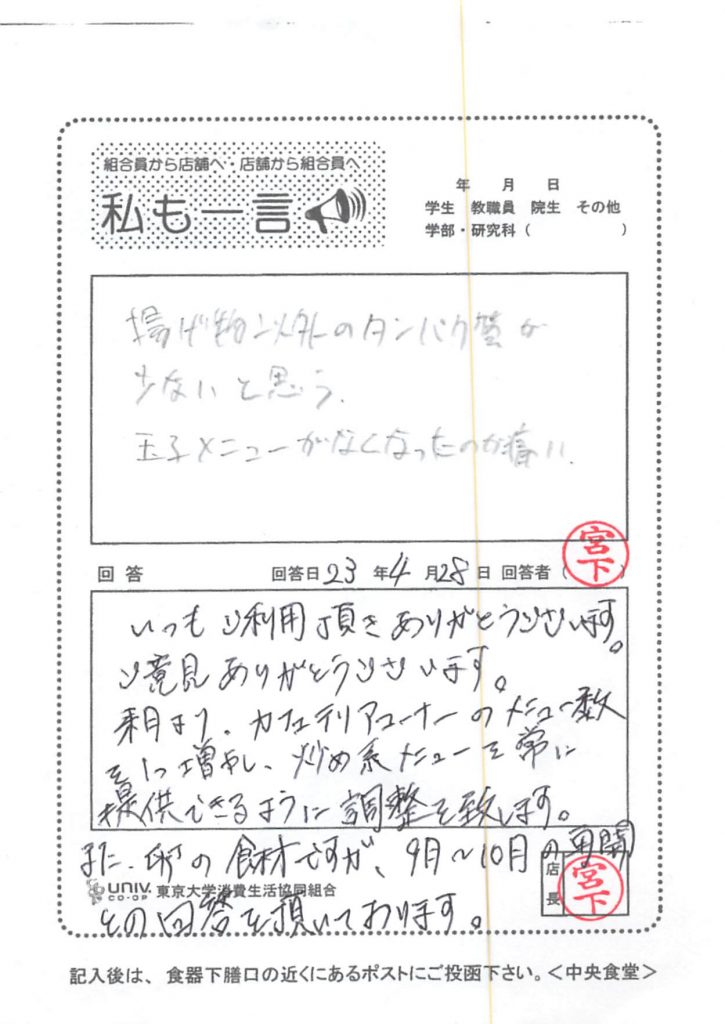 組合員から店舗へ・店舗から組合員へ
私も一言
年 月 日
学生 教職員 院生 その他
学部・研究科( )
揚げ物以外のタンパク質が
少ないと思う.
玉子メニューがなくなったのが痛い.
回答 回答日 23 年 4 月 28 日 回答者( 宮下 )
いつもご利用頂きありがとうございます。
ご意見ありがとうございます。
来月より、カフェテリアコーナーのメニュー数
を1つ増やし、炒め系メニューを常に
提供できるように調整を致します。
また、卵の食材ですが、9月〜10月の再開
UNIV. CO-OP 東京大学消費生活協同組合 店長 宮下
との回答を頂いております。
記入後は、食器下膳口の近くにあるポストにご投函下さい。<中央食堂>